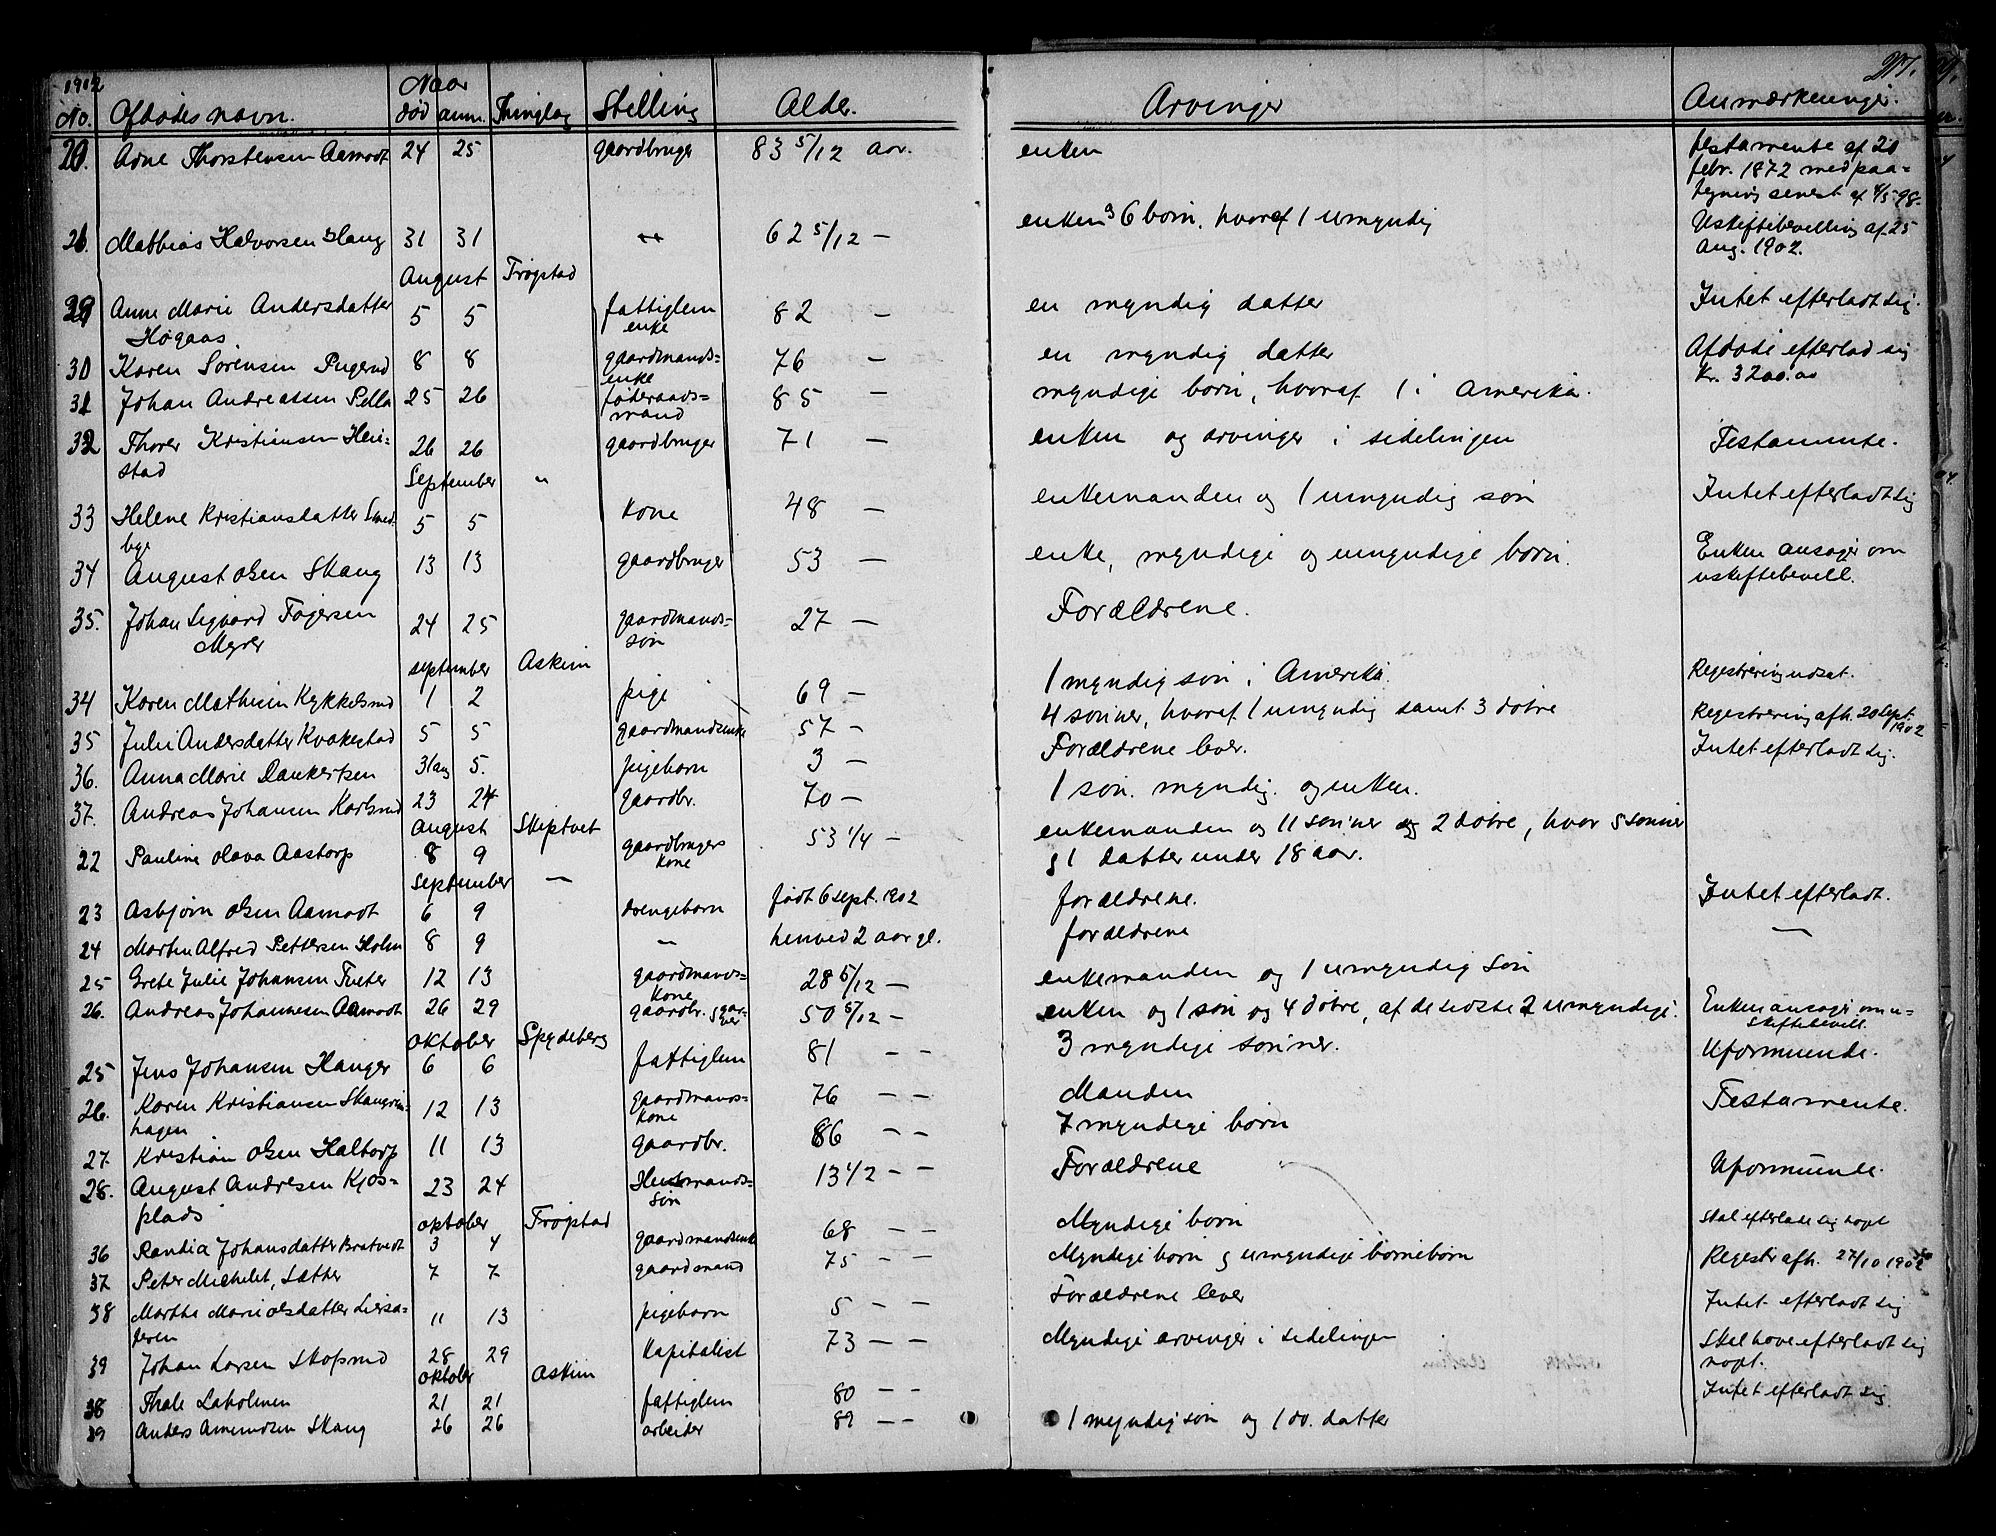 1902 Naar 217.
No. Afdødes navn. død anm. Thinglag Stilling Alder. Arvinger Anmærkninger.
20. Arne Thorstensen Aamodt 24 25 gaardbruger 83 5/12 aar. enken testamente af 20
febr. 1872 med paa-
tegning senest af 4/5 98.
21. Mathias Halvorsen Haug 31 31 " 62 5/12 — enken og 6 børn, hvoraf 1 umyndig Uskiftebevilling af 25
Aug. 1902.
August Trøgstad
29 Anne Marie Andersdatter 5 5 fattiglem 82 — en myndig datter Intet efterladt sig.
Høgaas enke
30 Karen Sørensen 8 8 gaardmands= 76 — en myndig datter Afdøde efterlod sig
enke kr. 3200.00
31 Johan Andreassen Pella 25 26 føderaads= 85 — myndige børn, hvoraf 1 i Amerika.
mand
32 Thorer Kristiansen Hei- 26 26 gaardbruger 71 — enken og arvinger i sidelinjen Testamente.
stad
September "
33 Helene Kristiansdatter Smed- 5 5 kone 48 — enkemanden og 1 umyndig søn Intet efterladt sig
bye
34 August Olsen Skaug 13 13 gaardbruger 53 — enke, myndige og umyndige børn. Enken ansøger om
uskiftebevill.
35. Johan Sigvard Fajersen 24 25 gaardmands= 27 — Forældrene.
Myrer søn
september Askim
34 Karen Mathisen Kykkelsrud 1 2 pige 69 — 1 myndig søn i Amerika. Registrering udsat.
35 Julie Andersdatter Kvakestad 5 5 gaardmandsenke 57 — 4 sønner, hvoraf 1 umyndig samt 3 døtre Registrering afh. 20 Sept.
1902
36. Anna Marie Dankertsen 31 aug 5. pigebarn 3 — Forældrene lever. Intet efterladt sig.
37. Andreas Johansen Karlsrud 23 24 gaardbr. 70 — 1 søn. myndig. og enken.
August Skiptvet
22 Pauline Olava Aastorp 8 9 gaardbrugers 53 1/4 — enkemanden og 11 sønner og 2 døtre, hvor 5 sønner
kone og 1 datter under 18 aar.
September —
23 Asbjørn Olsen Aamodt 6 9 drengebarn født 6 sept. 1902 forældrene. Intet efterladt.
24 Martin Alfred Pettersen Holm 8 9 — henved 2 aar gl. forældrene —
25 Grete Julie Johansen Tveter 12 13 gaardmands= 28 5/12 — enkemanden og 1 umyndig søn
kone
26. Andreas Johannesen Aamodt 26 29 gaardbr. 50 5/12 — enken og 1 søn og 4 døtre, af de sidste 2 umyndige. Enken ansøger om u-
skiftebevill.
oktober Spydeberg
25 Jens Johansen Hanger 6 6 fattiglem 81 — — 3 myndige sønner. Uformuende.
26. Karen Kristiansen 12 13 gaardmands= 76 — — Manden Testamente.
hagen kone
27. Kristian Olsen Haltorp 11 13 gaardbr. 86 — — 7 myndige børn
28. August Andresen Kjos- 23 24 Husmands= 13 1/2 — — Forældrene Uformuende.
plads søn
oktober Trøgstad
36 Randia Johansdatter Bratvedt 3 4 gaardmandsenke 68 — — Myndige børn Skal efterlade sig nogt
37 Peter Michelet, Sætter 7 7 gaardmand 75 — — Myndige børn og umyndige børnebørn Registr. afh. 27/10 1902
38 Marthe Marie Olsdatter 11 13 pigebarn 5 — — Forældrene lever Intet efterladt sig
39 Johan Larsen Skofsrud 28 29 Kapitalist 73 — — Myndige arvinger i sidelinjen Skal have efterladt sig
nogt.
oktober Askim
38 Thale Labolmen 21 21 fattiglem 80 — — Intet efterladt sig
39 Anders Amundsen Skaug 26 26 arbeider 89 — — 1 myndig søn og 1 do. datter